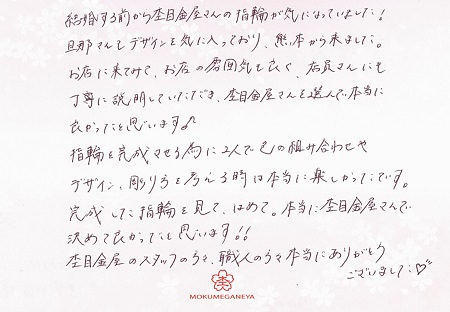 結婚する前から杢目金屋さんの指輪が気になっていました!
旦那さんもデザインを気に入っており、熊本から来ました。
お店に来てみて、お店の雰囲気も良く、店員さんにも
丁寧に説明していただき、杢目金屋さんを選んで本当に
良かったと思います♪
指輪を完成させる為に2人で色の組み合わせや
デザイン、彫り方を考える時は本当に楽しかったです。
完成した指輪を見て、はめて。本当に杢目金屋さんで
決めて良かったと思います!!
杢目金屋のスタッフの方々、職人の方々本当にありがとう
ございました!♡
MOKUMEGANEYA